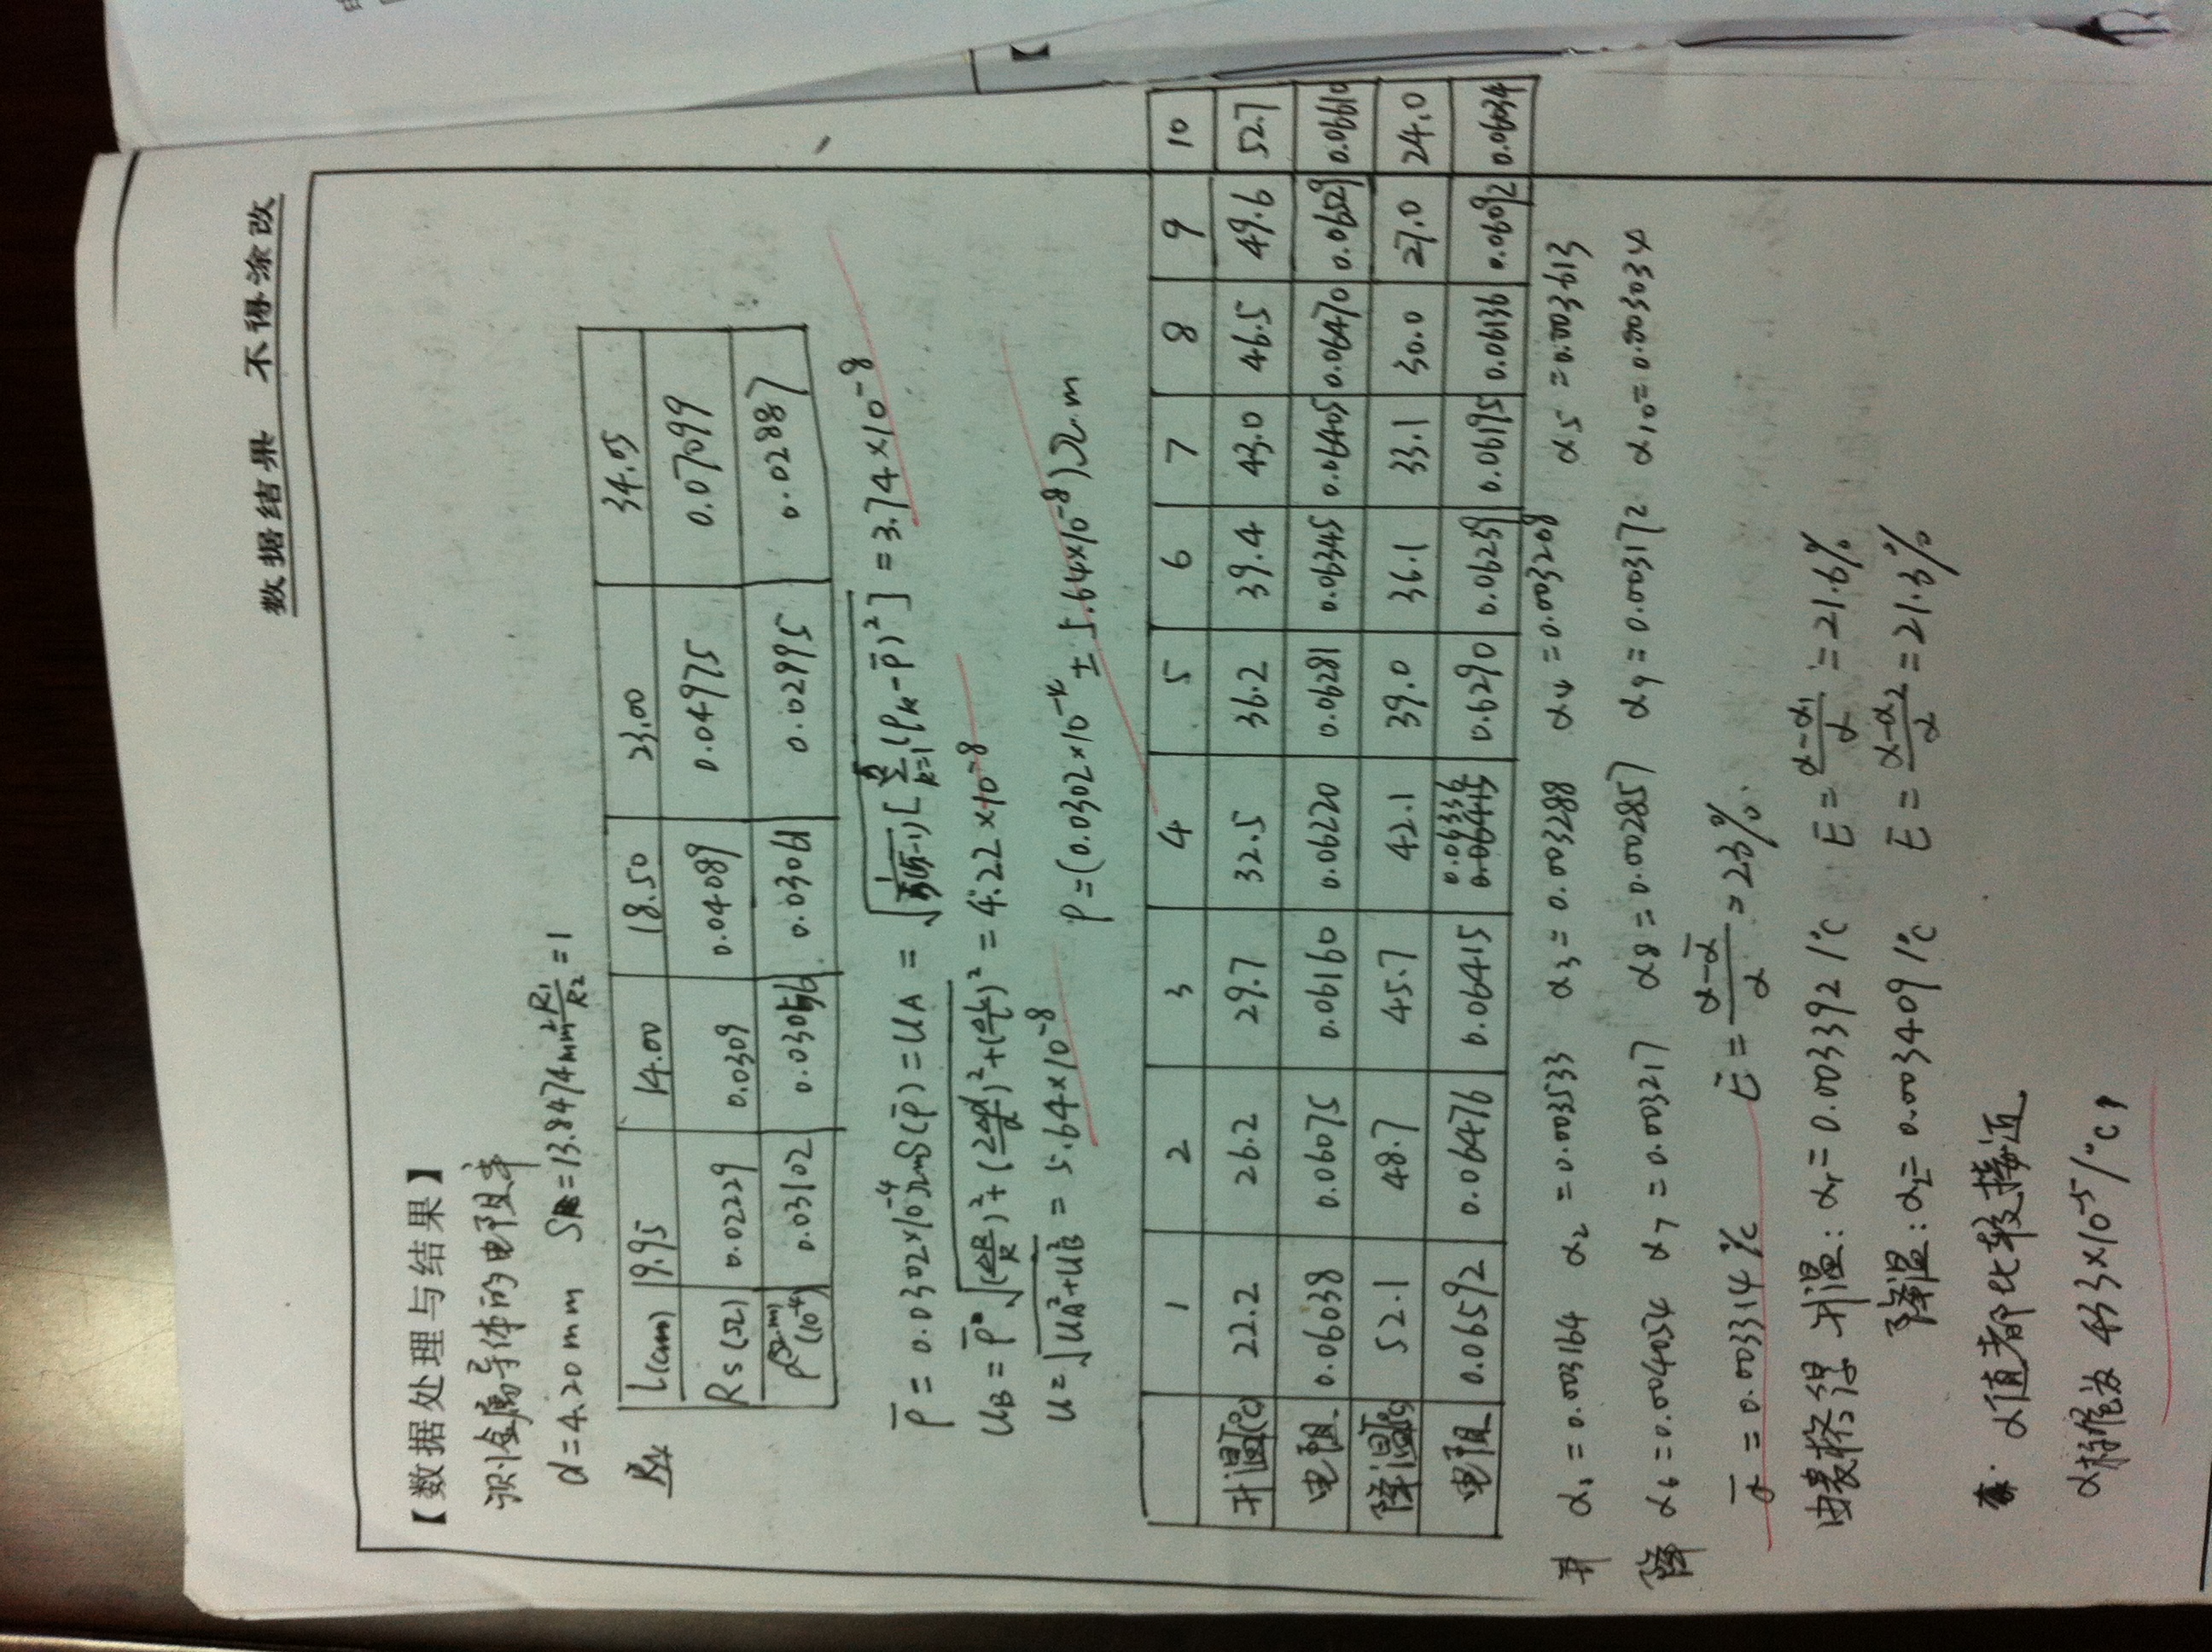 数据结果 不得涂改
【数据处理与结果】
测金属导体的电阻率
d=4.20mm S=13.8474mm² R₁/R₂=1
l(cm) 9.95 14.00 18.50 23.00 34.05
Rs(Ω) 0.02229 0.0309 0.04089 0.04975 0.07099
ρ(Ω.m)(10⁻⁴) 0.03102 0.03056 0.03061 0.02995 0.02887
ρ̄=0.0302×10⁻⁴Ωm S(ρ̄)=UA=√(1/(5(5-1))[Σ(k=1→5)(ρk-ρ̄)²])=3.74×10⁻⁸
UB=ρ̄√((ΔR/R)²+(2Δd/d)²+(ΔL/L)²)=4.22×10⁻⁸
U=√(UA²+UB²)=5.64×10⁻⁸ ρ=(0.0302×10⁻⁴±5.64×10⁻⁸)Ω.m
1 2 3 4 5 6 7 8 9 10
升温T(℃) 22.2 26.2 29.7 32.5 36.2 39.4 43.0 46.5 49.6 52.7
电阻 0.06038 0.06075 0.06160 0.06220 0.06281 0.06345 0.06405 0.06470 0.06529 0.06610
降温T(℃) 52.1 48.7 45.7 42.1 39.0 36.1 33.1 30.0 27.0 24.0
电阻 0.06592 0.06476 0.06415 0.06336 0.6290 0.06239 0.06195 0.06136 0.06092 0.06034
升 α₁=0.003164 α₂=0.003533 α₃=0.003288 α₄=0.003208 α₅=0.003613
降 α₆=0.004054 α₇=0.003217 α₈=0.002857 α₉=0.003172 α₁₀=0.003034
ᾱ=0.003314/℃ E=(α-ᾱ)/α=23%.
由表格得 升温:α₁=0.003392/℃ E=(α-α₁)/α=21.6%
降温:α₂=0.003409/℃ E=(α-α₂)/α=21.3%
α值都比较接近
α标准为433×10⁻⁵/℃,